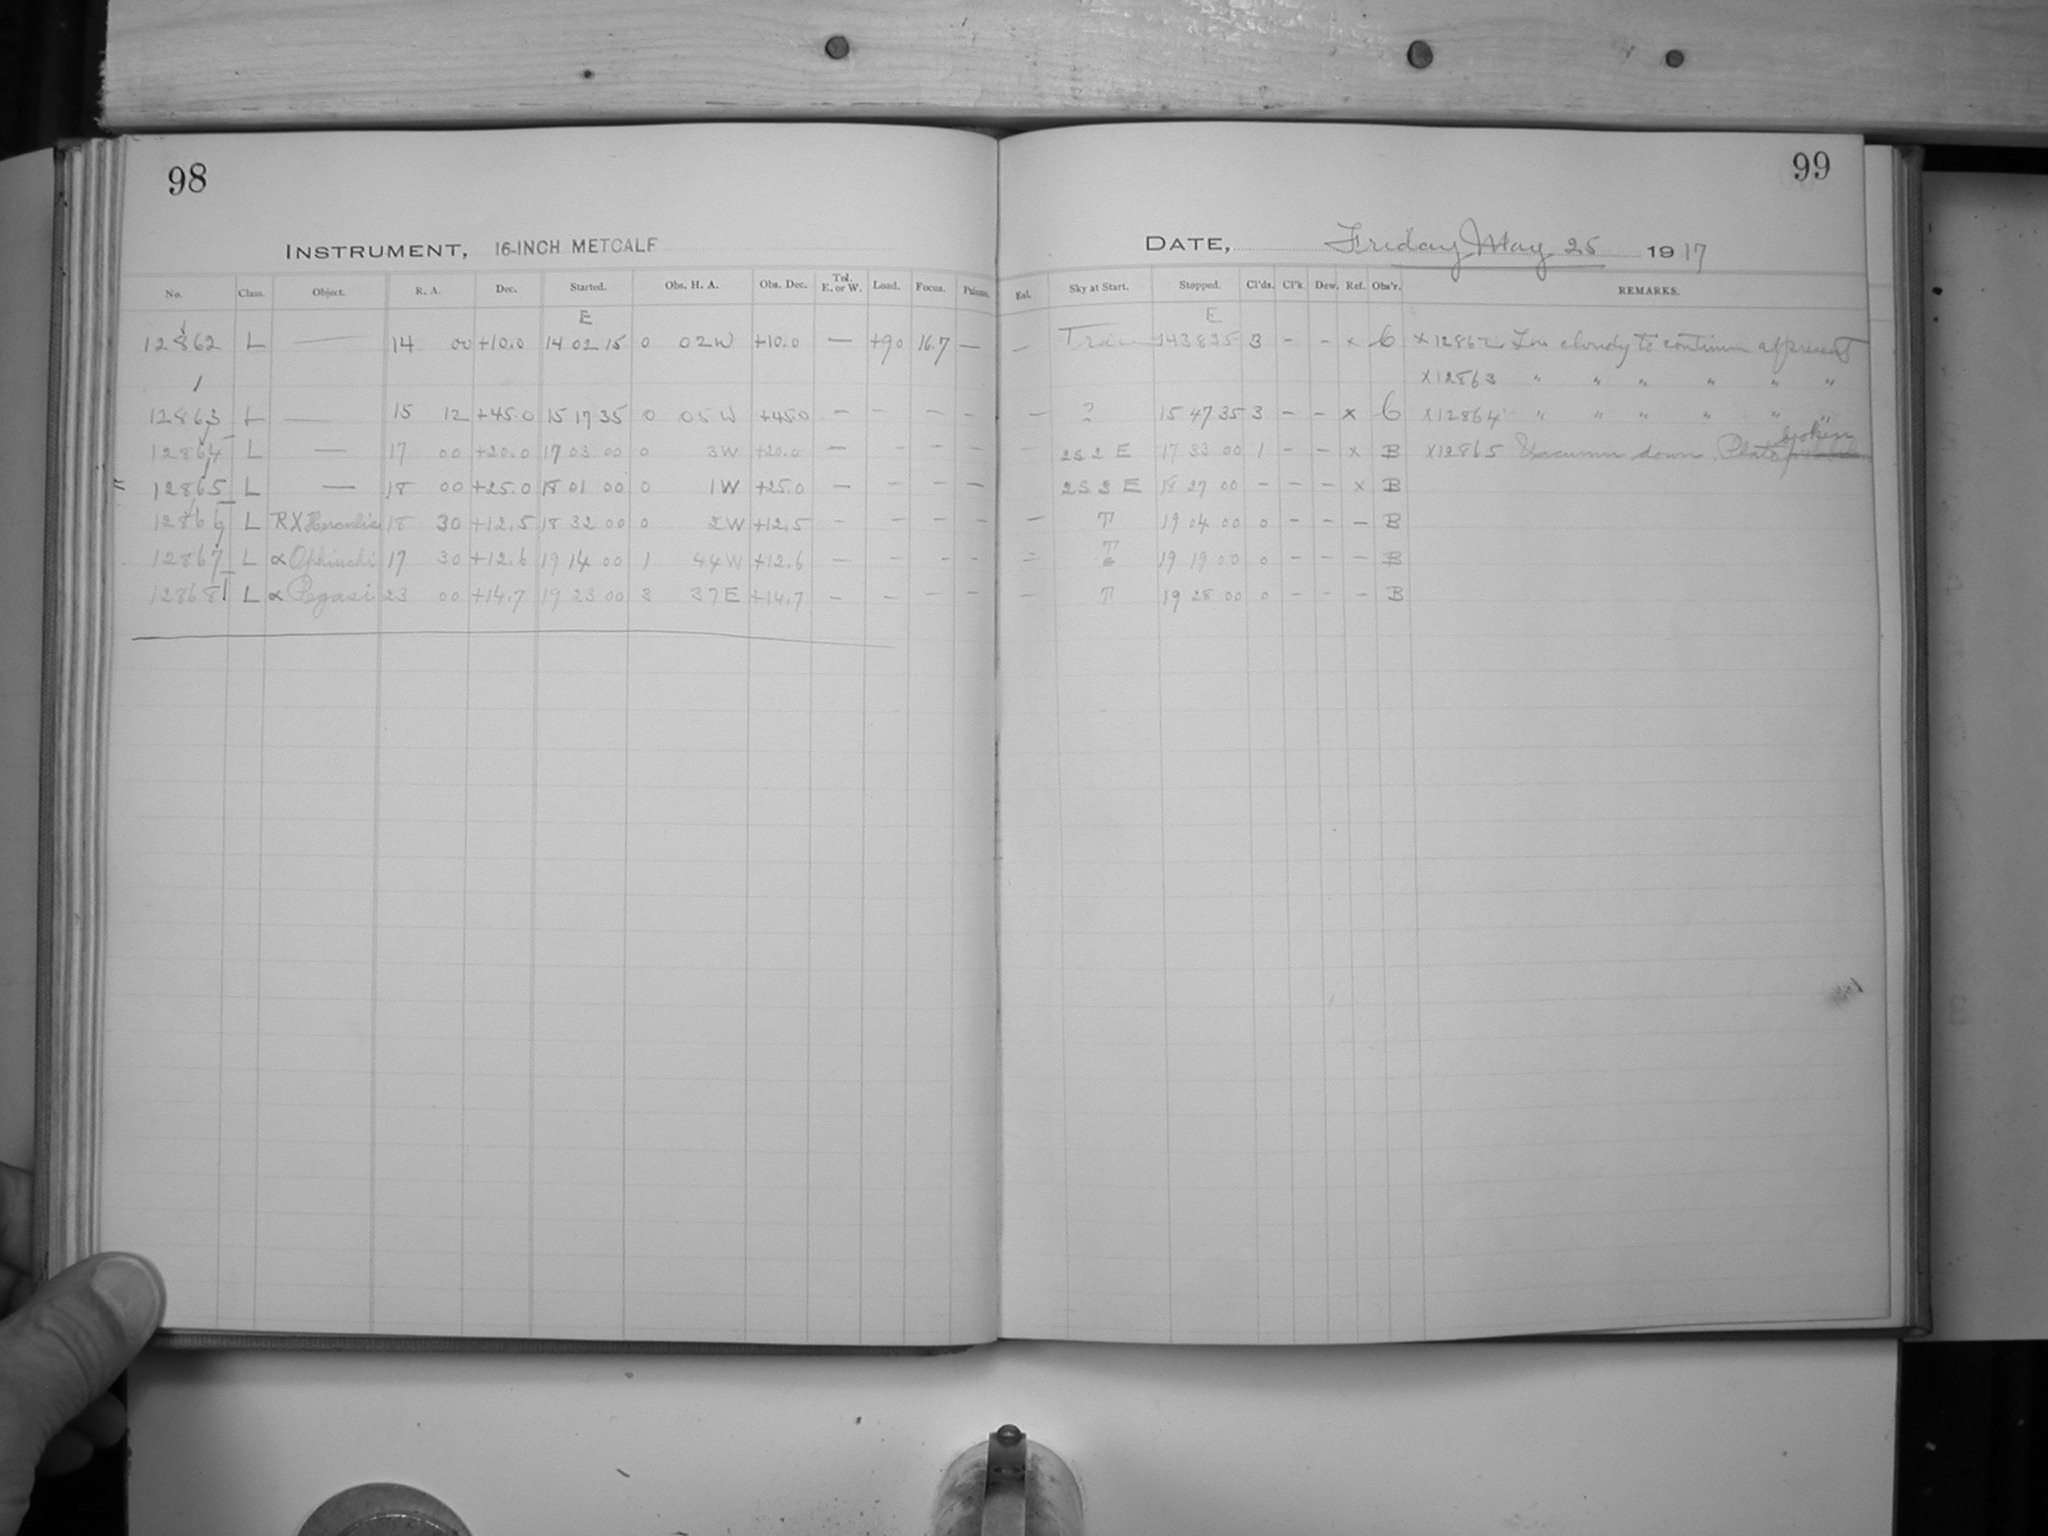 98
99
INSTRUMENT, 16-INCH METCALF
DATE, Friday May 25 1917
No. Class. Object. R. A. Dec. Started. Obs. H. A. Obs. Dec. Tel. E. or W. Load. Focus. Prisms. Eal. Sky at Start. Stopped. Cl'ds. Cl'k. Dew. Ref. Obs'r. REMARKS.
E E
12862 L — 14 00 +10.0 14 02 15 0 02W +10.0 — +90 16.7 — — 14 38 35 3 - - x C x12862 Too cloudy to continue at present
x12863 " " " " " "
12863 L — 15 12 +45.0 15 17 35 0 05W +45.0 — - - - — ? 15 47 35 3 - - x C x12864 " " " " " "
12864 L — 17 00 +20.0 17 03 00 0 3W +20.0 — - - - - 2S 2 E 17 33 00 1 - - x B x12865 Vacuum down. Plate broken
= 12865 L — 18 00 +25.0 18 01 00 0 1W +25.0 — - - - - 2S 3 E 18 27 00 - - - x B
12866 L RX Herculis 18 30 +12.5 18 32 00 0 2W +12.5 - - - - — T 19 04 00 0 - - - B
12867 L α Ophiuchi 17 30 +12.6 19 14 00 1 44W +12.6 - - - - - T 6 19 19 00 0 - - - B
12868 L α Pegasi 23 00 +14.7 19 23 00 3 37E +14.7 - - - - - T 19 28 00 0 - - - B